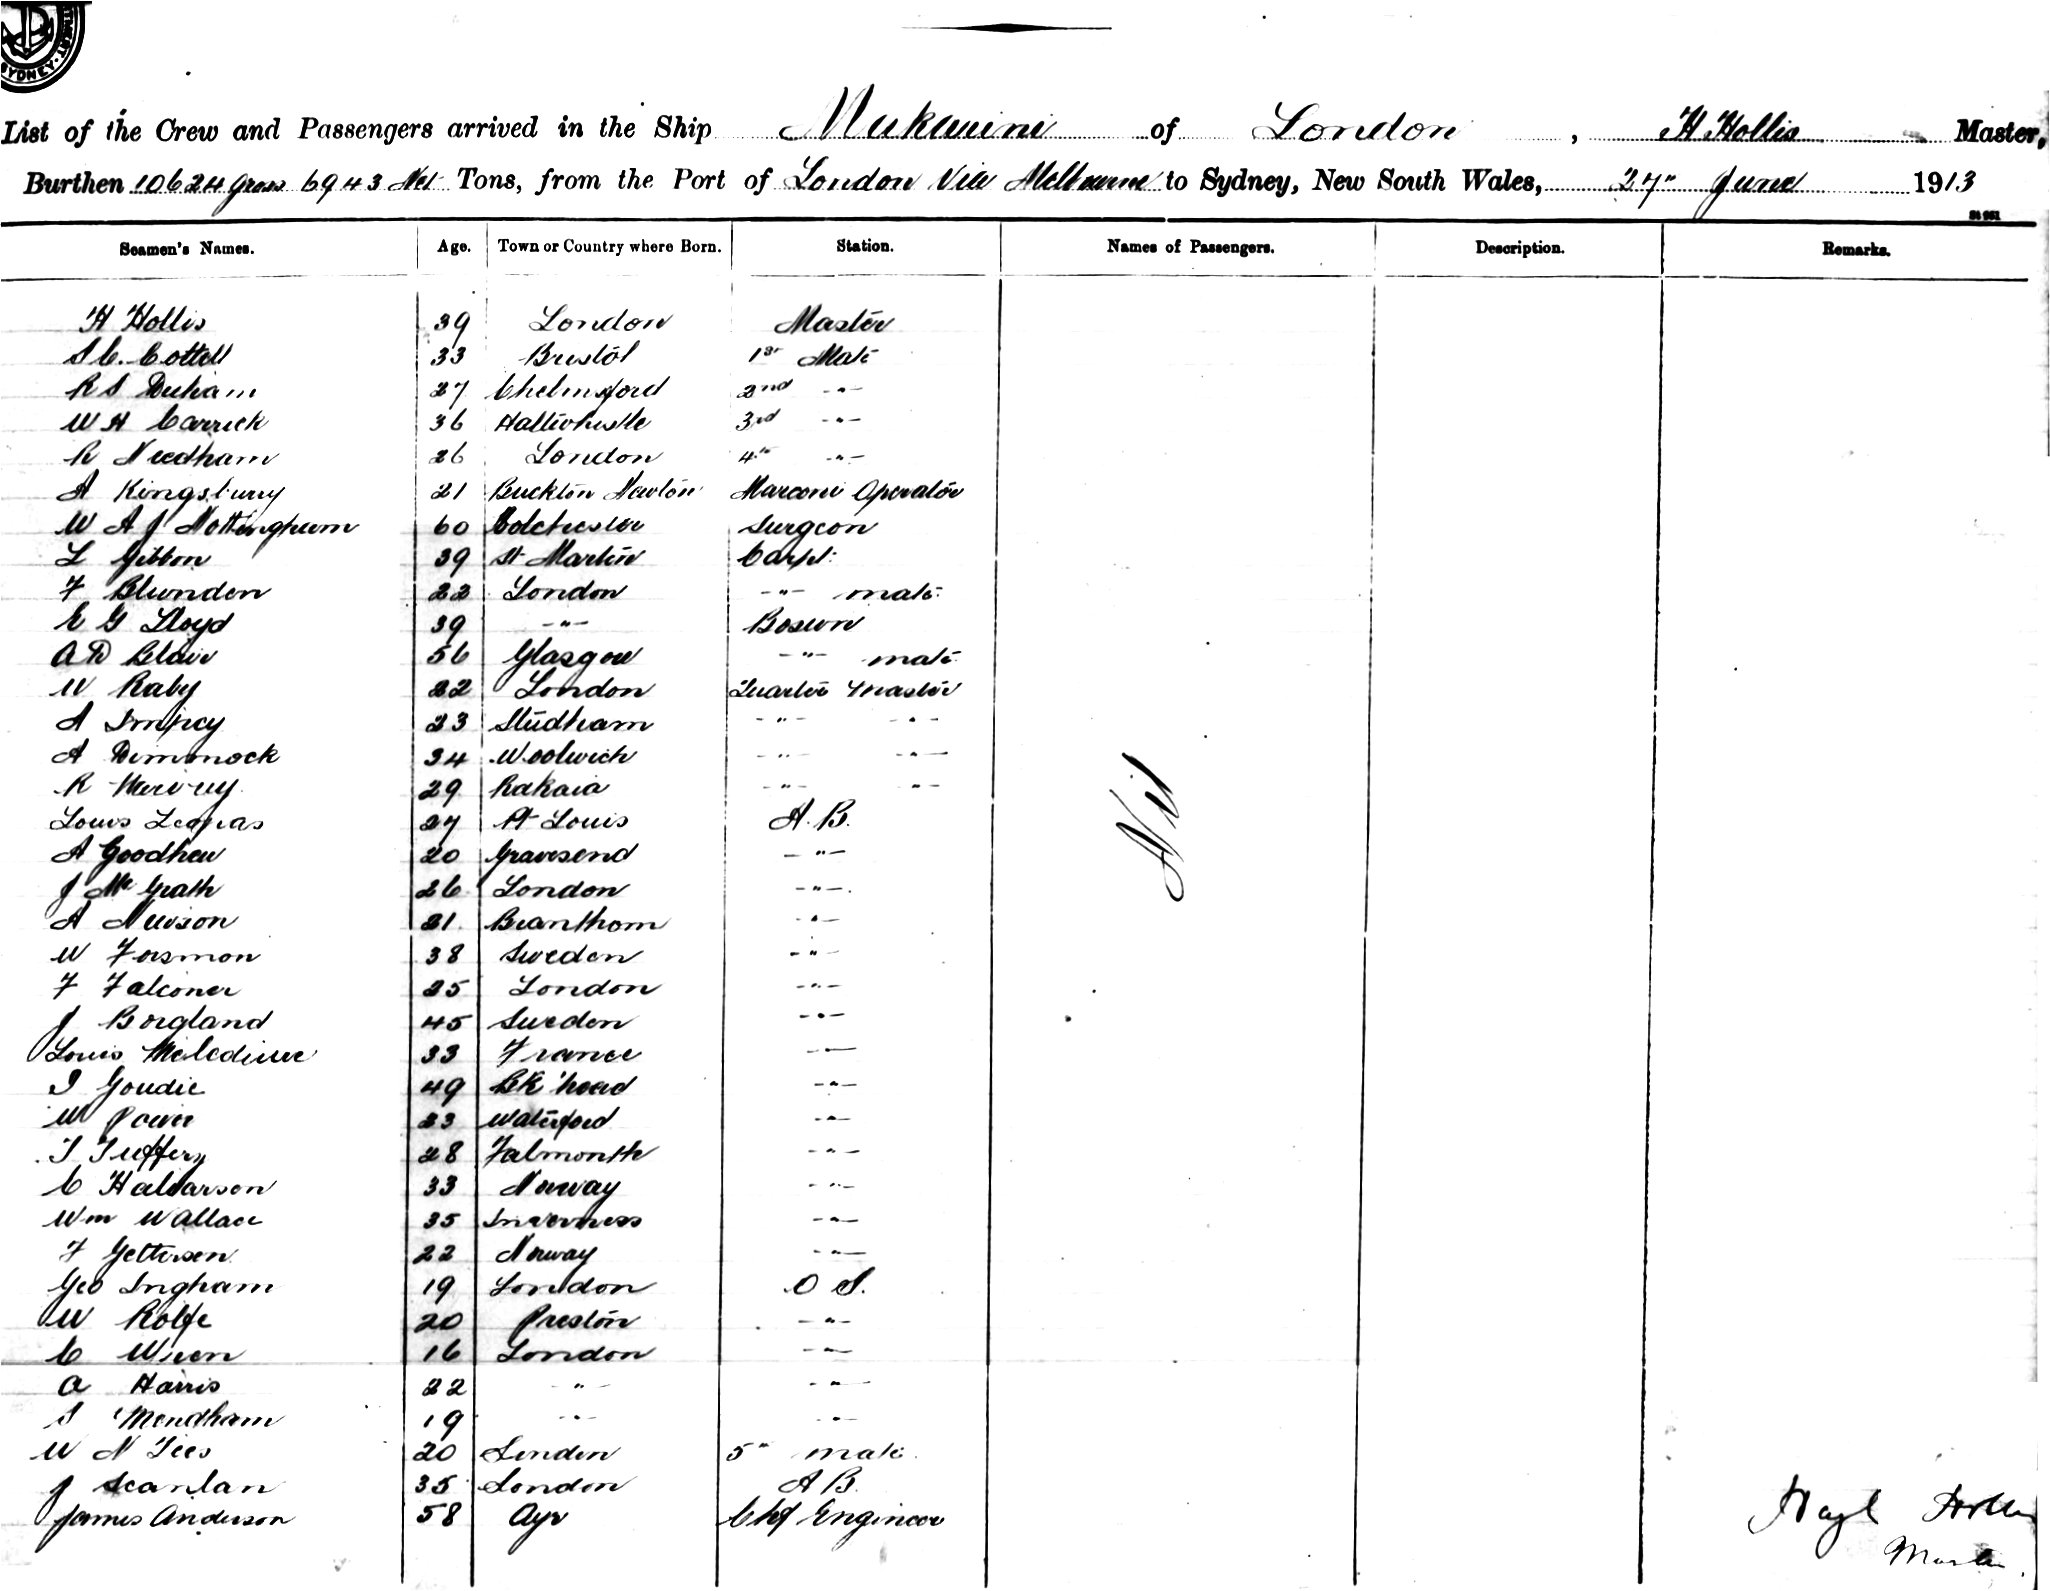 SYDNEY
List of the Crew and Passengers arrived in the Ship of London, H Hollis Master,
Burthen 10624 gross 6943 Net Tons, from the Port of London Via Melbourne to Sydney, New South Wales, 27" June 1913
Seamen's Names. Age. Town or Country where Born. Station. Names of Passengers. Description. Remarks.
H Hollis 39 London Master
S C. Cottell 33 Bristol 1st Mate
R S 27 Chelmsford 2nd -"-
W H Carrick 36 Haltwhistle 3rd -"-
R Needham 26 London 4th -"-
A Kingsbury 21 Buckton Newton Marconi Operator
W A J Nottingham 60 Colchester Surgeon
L Gibbon 39 St Martin Carpt.
F Blunden 22 London -"- mate
E G Lloyd 39 -"- Bosun
A D Blair 56 Glasgow -"- mate
W Raby 22 London Quarter Master
A Impey 23 Studham -"- -"-
A Dimmock 34 Woolwich -"- -"-
R 29 Rakaia -"- -"-
Louis 27 Pt Louis A. B.
A Goodhew 20 Gravesend -"-
J Mc Grath 26 London -"-
A Newson 21 Brantham -"-
W Forsmon 38 Sweden -"-
F Falconer 25 London -"-
J Borgland 45 Sweden -"-
Louis 33 France -"-
J Goudie 49 BK'head -"-
W Power 23 Waterford -"-
T Tuffery 28 Falmouth -"-
C Halvarson 33 Norway -"-
Wm Wallace 35 Inverness -"-
F 22 Norway -"-
Geo Ingham 19 London O S.
W Rolfe 20 Preston -"-
C Wren 16 London -"-
A Harris 22 -"- -"-
S Mendham 19 -"- -"-
W N Tees 20 London 5" mate
J Scanlan 35 London A B.
James Anderson 58 Ayr Chf Engineer
Nil
Hollis
Master